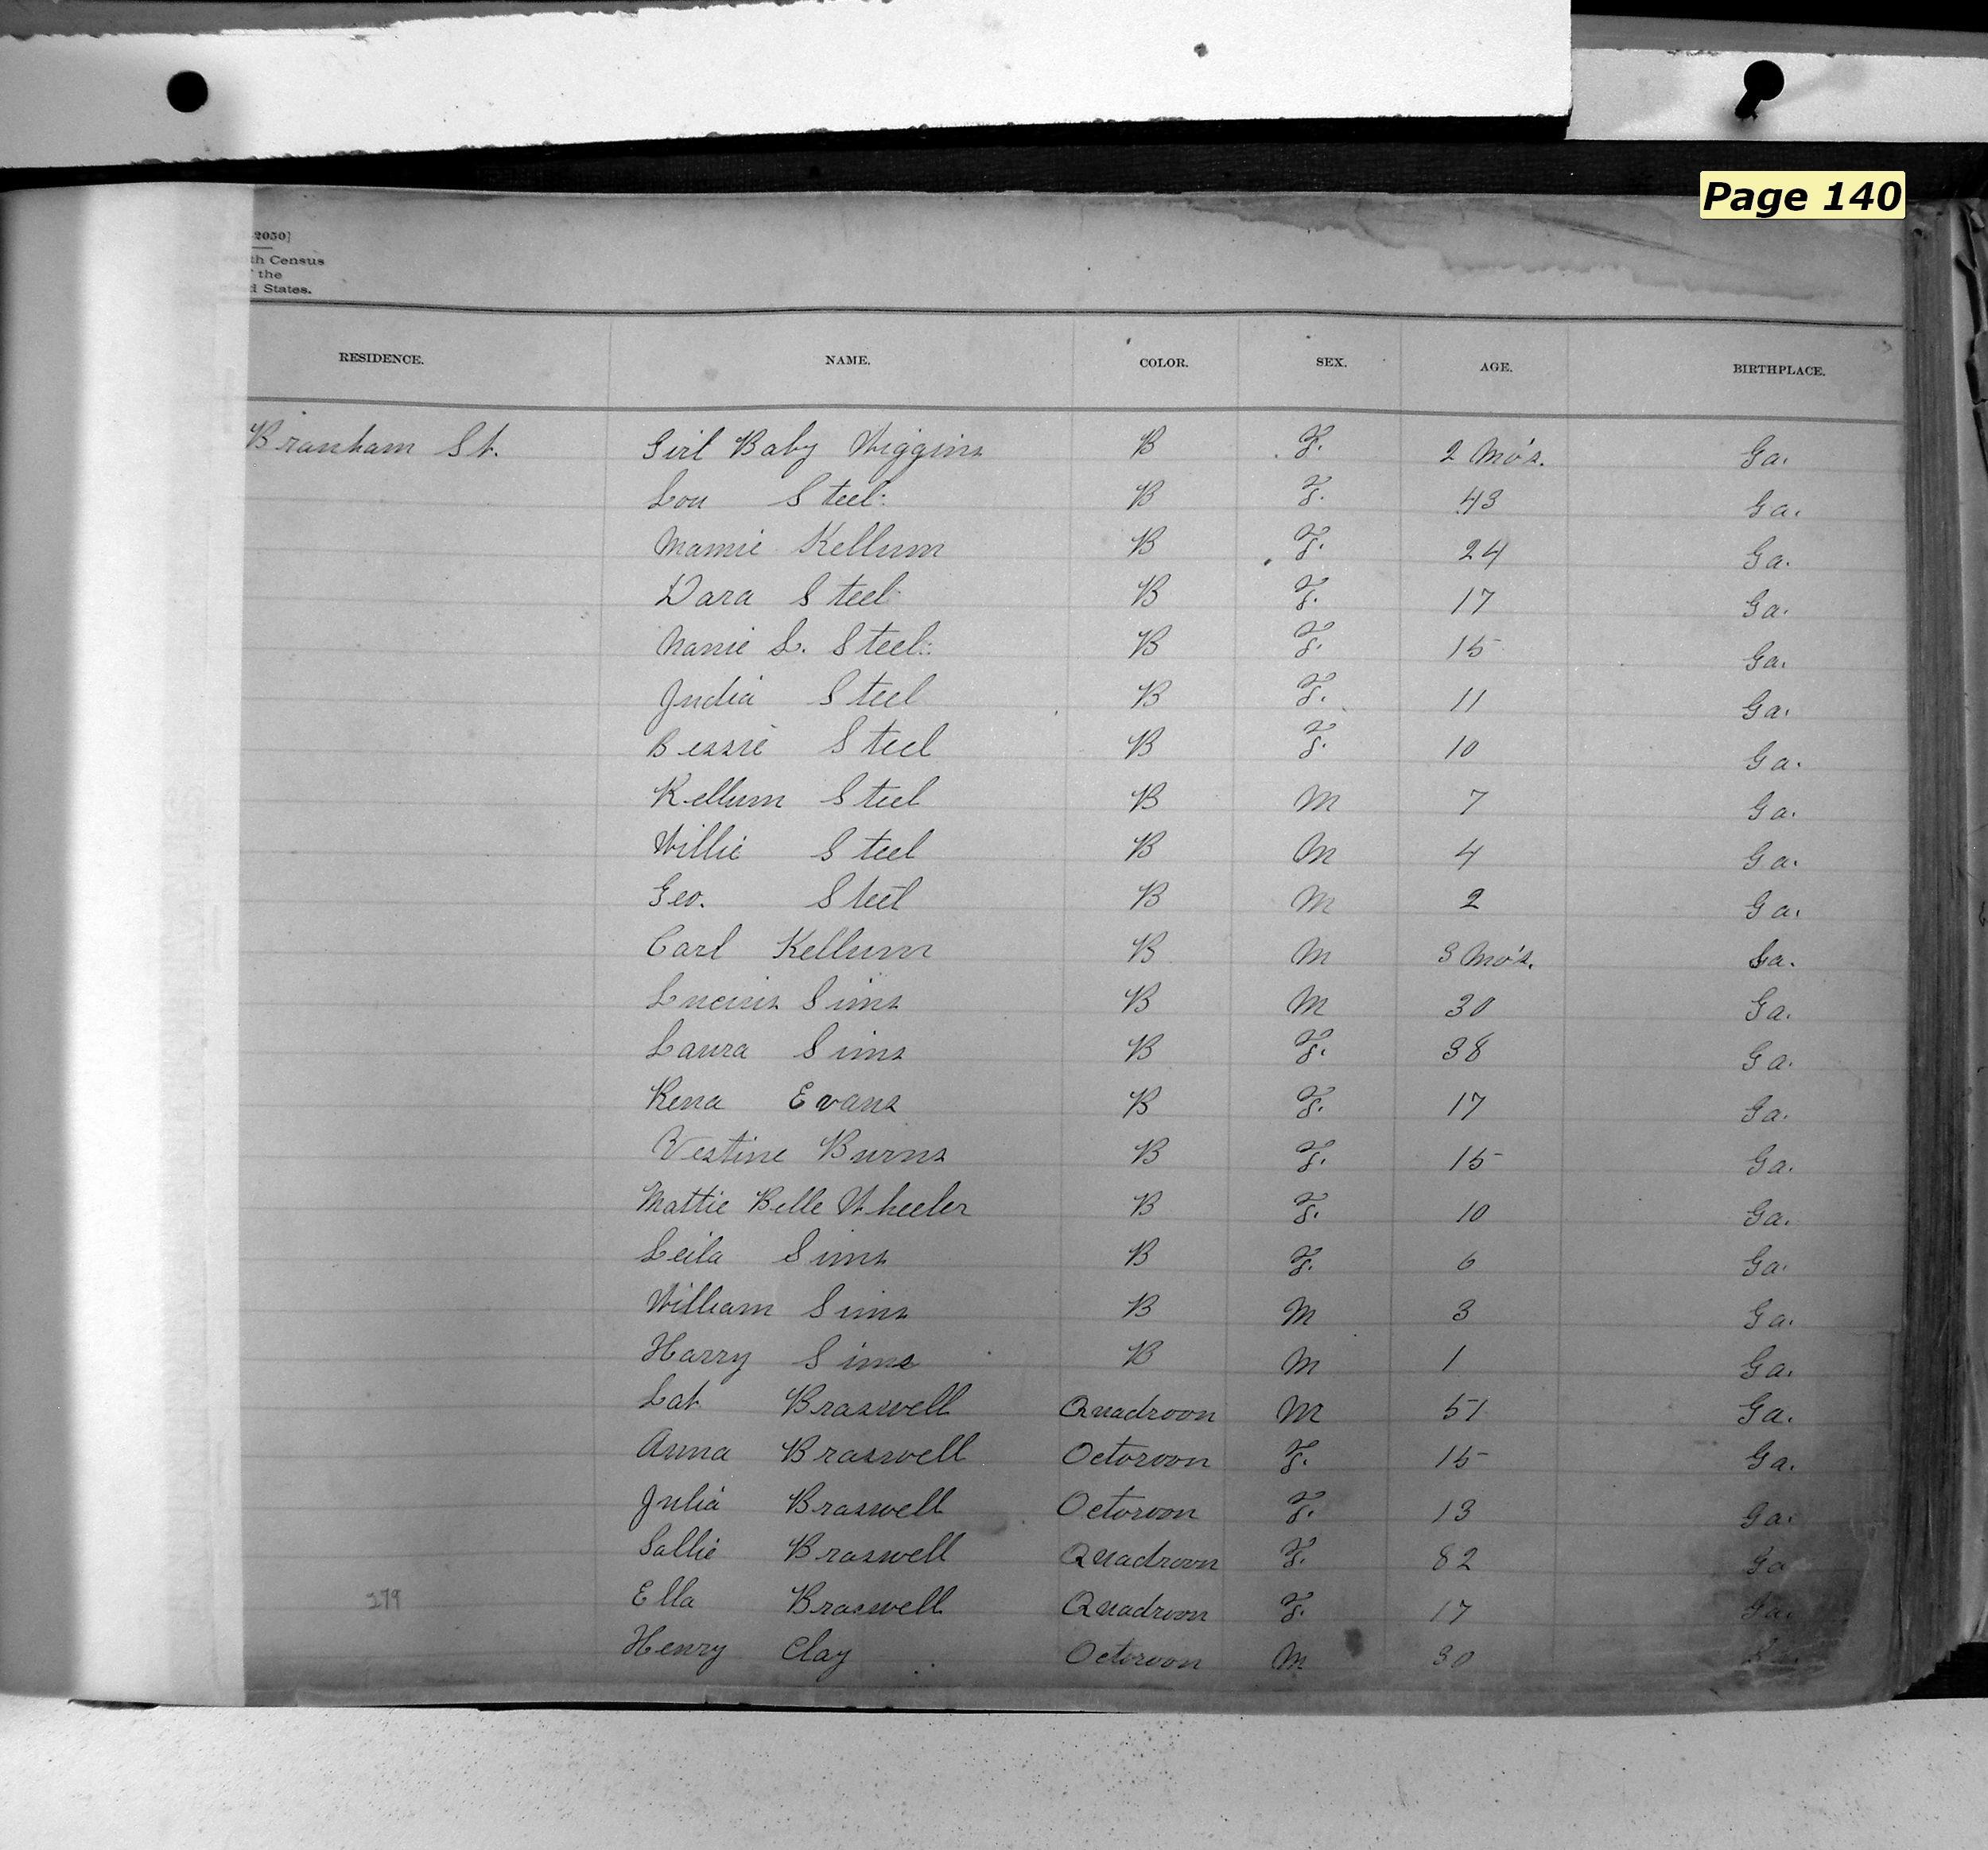 Page 140
-2050]
th Census
the
d States.
RESIDENCE. NAME. COLOR. SEX. AGE. BIRTHPLACE.
Branham St. Girl Baby Wiggins B F. 2 Mo's. Ga.
Lou Steel B F. 43 Ga.
Mamie Kellum B F. 24 Ga.
Dara Steel B F. 17 Ga.
Nanie L. Steel B F. 15 Ga.
India Steel B F. 11 Ga.
Bessie Steel B F. 10 Ga.
Kellum Steel B M 7 Ga.
Willie Steel B M 4 Ga.
Geo. Steel B M 2 Ga.
Carl Kellum B M 3 Mo's. Ga.
Lucius Sims B M 30 Ga.
Laura Sims B F. 38 Ga.
Rena Evans B F. 17 Ga.
Vestine Burns B F. 15 Ga.
Mattie Belle Wheeler B F. 10 Ga.
Leila Sims B F. 6 Ga.
William Sims B M 3 Ga.
Harry Sims B M 1 Ga.
Lat Braswell Quadroon M 51 Ga.
Anna Braswell Octoroon F. 15 Ga.
Julia Braswell Octoroon F. 13 Ga.
Sallie Braswell Quadroon F. 82 Ga
179 Ella Braswell Quadroon F. 17 Ga.
Henry Clay Octoroon M 30